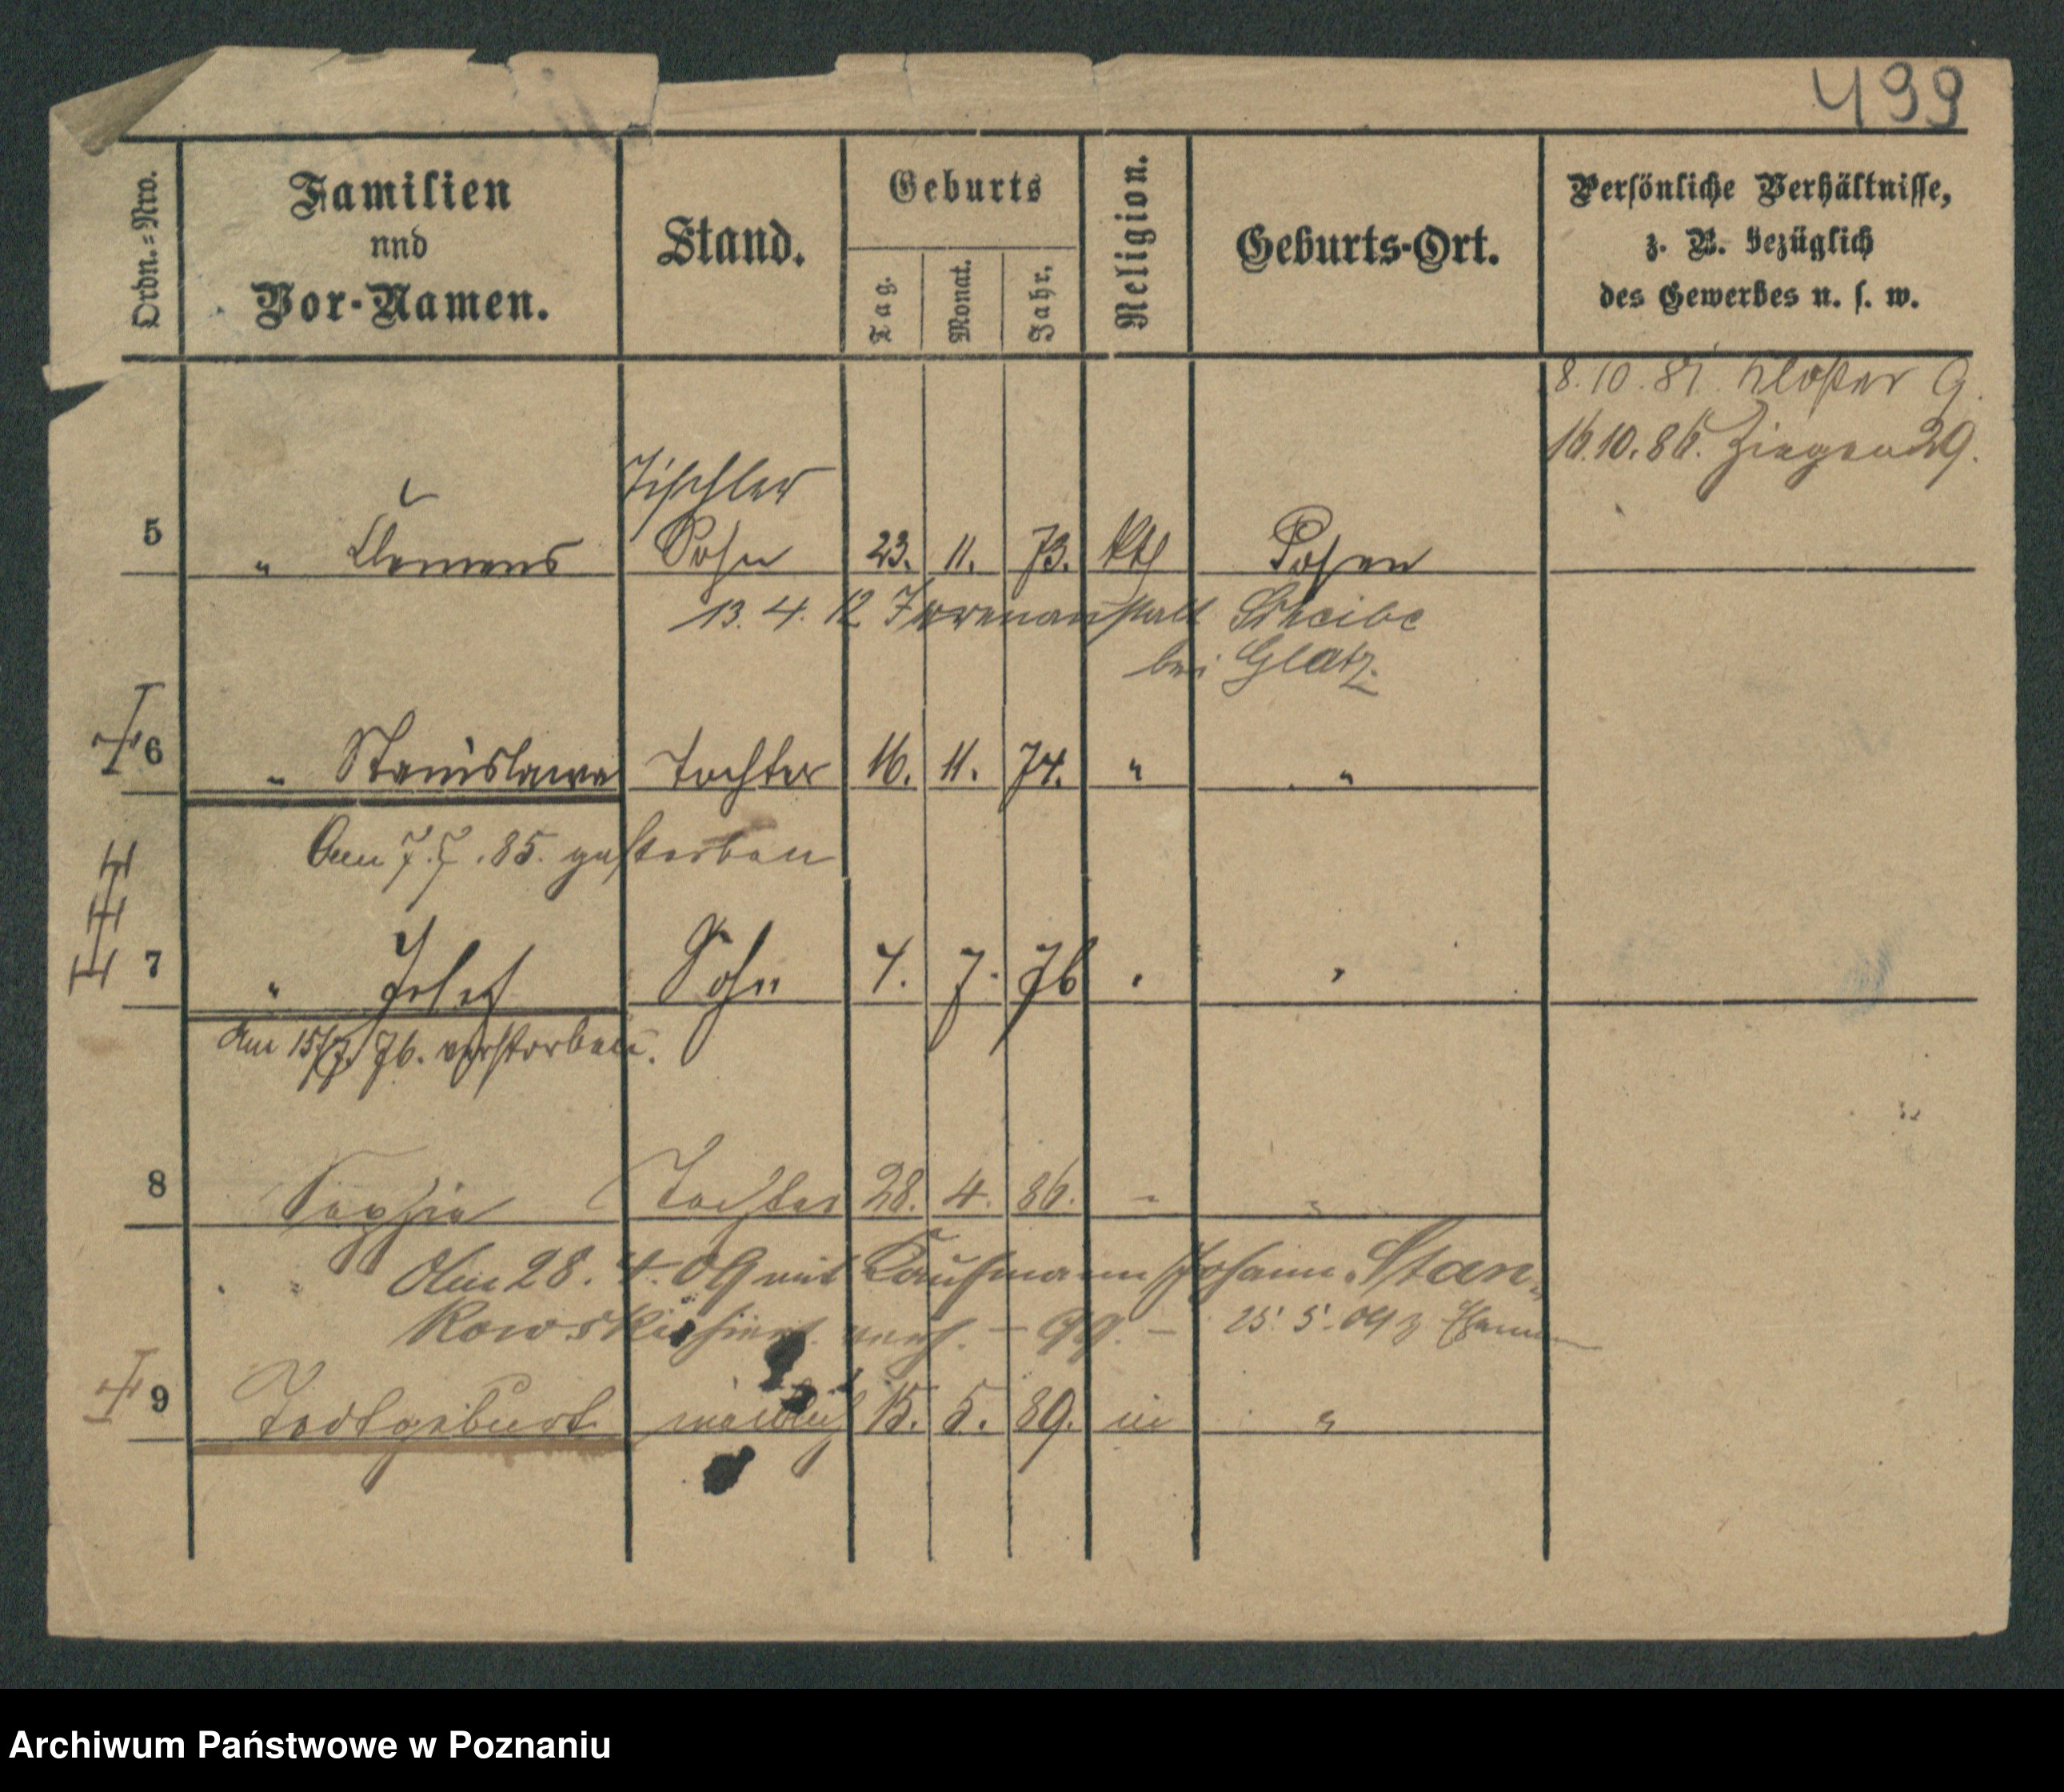 499
Ordn.=Nro.
Familien
und
Vor-Namen.
Stand.
Geburts
Tag.
Monat.
Jahr.
Religion.
Geburts-Ort.
Persönliche Verhältnisse,
z. B. bezüglich
des Gewerbes u. s. w.
8.10.81. Kloster 9.
16.10.86. Ziegen 29.
Tischler
5 " Clemens Sohn 23. 11. 73. kth Posen
13. 4. 12 Irrenanstalt Scheibe
bei Glatz.
6 " Stanislawa Tochter 16. 11. 74. " "
Am 7.7.85. gestorben
7 " Josef Sohn 4. 7. 76 " "
Am 15/7. 76. verstorben.
8 Sophie Tochter 28. 4. 86. " "
Am 28. 4. 09 mit Kaufmann Johann Stan-
kowski hier verh. - 99. - 25. 5. 09
9 Todtgeburt weiblich 15. 5. 89. "
Archiwum Państwowe w Poznaniu